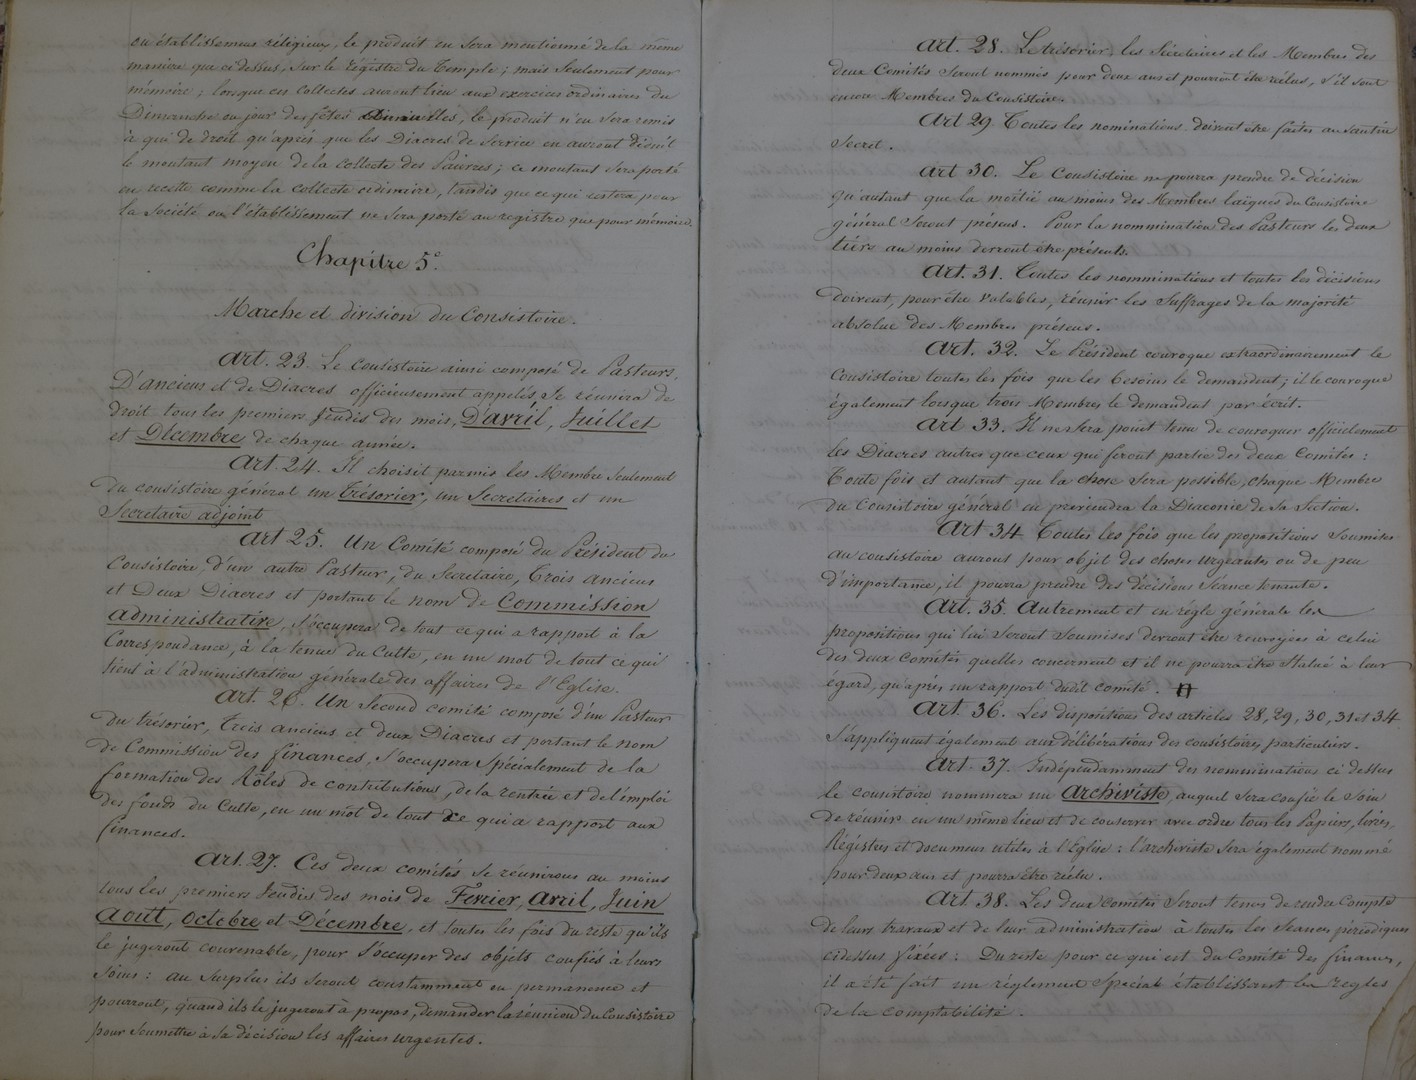 ou établissemens réligieux, le produit en sera mentionné de la même
manière que ci dessus, sur le régistre du Temple; mais seulement pour
mémoire; lorsque ces collectes auront lieu aux exercices ordinaires du
Dimanche ou jour des fêtes, le produit n'en sera remis
à qui de droit qu'après que les Diacres de service en auront déduit
le montant moyen de la collecte des Pauvres; ce montant sera porté
en recette comme la collecte ordinaire, tandis que ce qui restera pour
la société ou l'établissement ne sera porté au registre que pour mémoire.
Chapitre 5e.
Marche et division du Consistoire.
Art. 23. Le consistoire ainsi composé de Pasteurs,
D'anciens et de Diacres officieusement appelés, se réunira de
droit tous les premiers Jeudis des mois, D'avril, Juillet
et Décembre de chaque année.
Art. 24. Il choisit parmis les Membre seulement
du consistoire général un trésorier, un Secretaires et un
Secretaire adjoint
Art 25. Un Comité composé du Président du
Consistoire, d'un autre Pasteur, du Secretaire, Trois anciens
et Deux Diacres et portant le nom de Commission
administrative, s'occupera de tout ce qui a rapport à la
Correspondance, à la tenue du Culte, en un mot de tout ce qui
tient à l'administration générale des affaires de l'Eglise.
Art. 26. Un Second comité composé d'un Pasteur
du trésorier, trois anciens et deux Diacres et portant le nom
de Commission des finances, s'occupera spécialement de la
formation des Rôles de contributions, de la rentrée et de l'emploi
des fonds du Culte, en un mot de tout ce qui a rapport aux
finances.
Art. 27. Ces deux comités se réuniront au moins
tous les premiers Jeudis des mois de Fevrier, Avril, Juin
Aout, Octobre et Décembre, et toutes les fois du reste qu'ils
le jugeront convenable, pour s'occuper des objets confiés à leurs
soins: au surplus ils seront constamment en permanence et
pourront, quand ils le jugeront à propos, demander la réunion du Consistoire
pour soumettre à sa décision les affaires urgentes.
Art. 28. Le trésorier, les Sécretaires et les Membres des
deux Comités seront nommés pour deux ans et pourront être réélus, s'il sont
encore Membres du Consistoire.
Art 29 Toutes les nominations doivent être faites au scrutin
secret.
Art 30. Le Consistoire ne pourra prendre de décision
qu'autant que la moitié au moins des Membres laïques du Consistoire
général seront présens. Pour la nommination des Pasteurs les deux
tiers au moins devront être présents.
Art. 31. Toutes les nomminations et toutes les décisions
doivent, pour être valables, réunir les suffrages de la majorité
absolue des Membres présens.
Art. 32. Le Président convoque extraordinairement le
Consistoire toutes les fois que les besoins le demandent; il le convoque
également lorsque trois Membres le demandent par écrit.
Art 33. Il ne sera point tenu de convoquer officielement
les Diacres autres que ceux qui feront partie des deux Comités:
Toute fois et autant que la chose sera possible, chaque Membre
du Consistoire général en previendra la Diaconie de sa section.
Art 34 Toutes les fois que les propositions soumises
au consistoire auront pour objet des choses urgeantes ou de peu
d'importance, il pourra prendre des décisions séance tenante.
Art. 35. Autrement et en règle générale les
propositions qui lui seront soumises devront être renvoyées à celui
des deux Comités quelles concernent et il ne pourra être statué à leur
égard, qu'après un rapport dudit comité.
Art. 36. Les dispositions des articles 28, 29, 30, 31 et 34
s'appliquent également aux délibérations des consistoires particuliers.
Art. 37. Indépendamment des nomminations ci dessus
le consistoire nommera un Archiviste, auquel sera confié le soin
de réunir en un même lieu et de conserver avec ordre tous les Papiers, livres,
Régistres et documens utiles à l'Eglise: l'archiviste sera également nommé
pour deux ans et pourra être réélu.
Art. 38. Les deux comités seront tenus de rendre Compte
de leurs travaux et de leur administration à toutes les séances périodiques
cidessus fixées: Du reste pour ce qui est du Comité des finances,
il a été fait un réglement spécial établissant les règles
de la comptabilité.